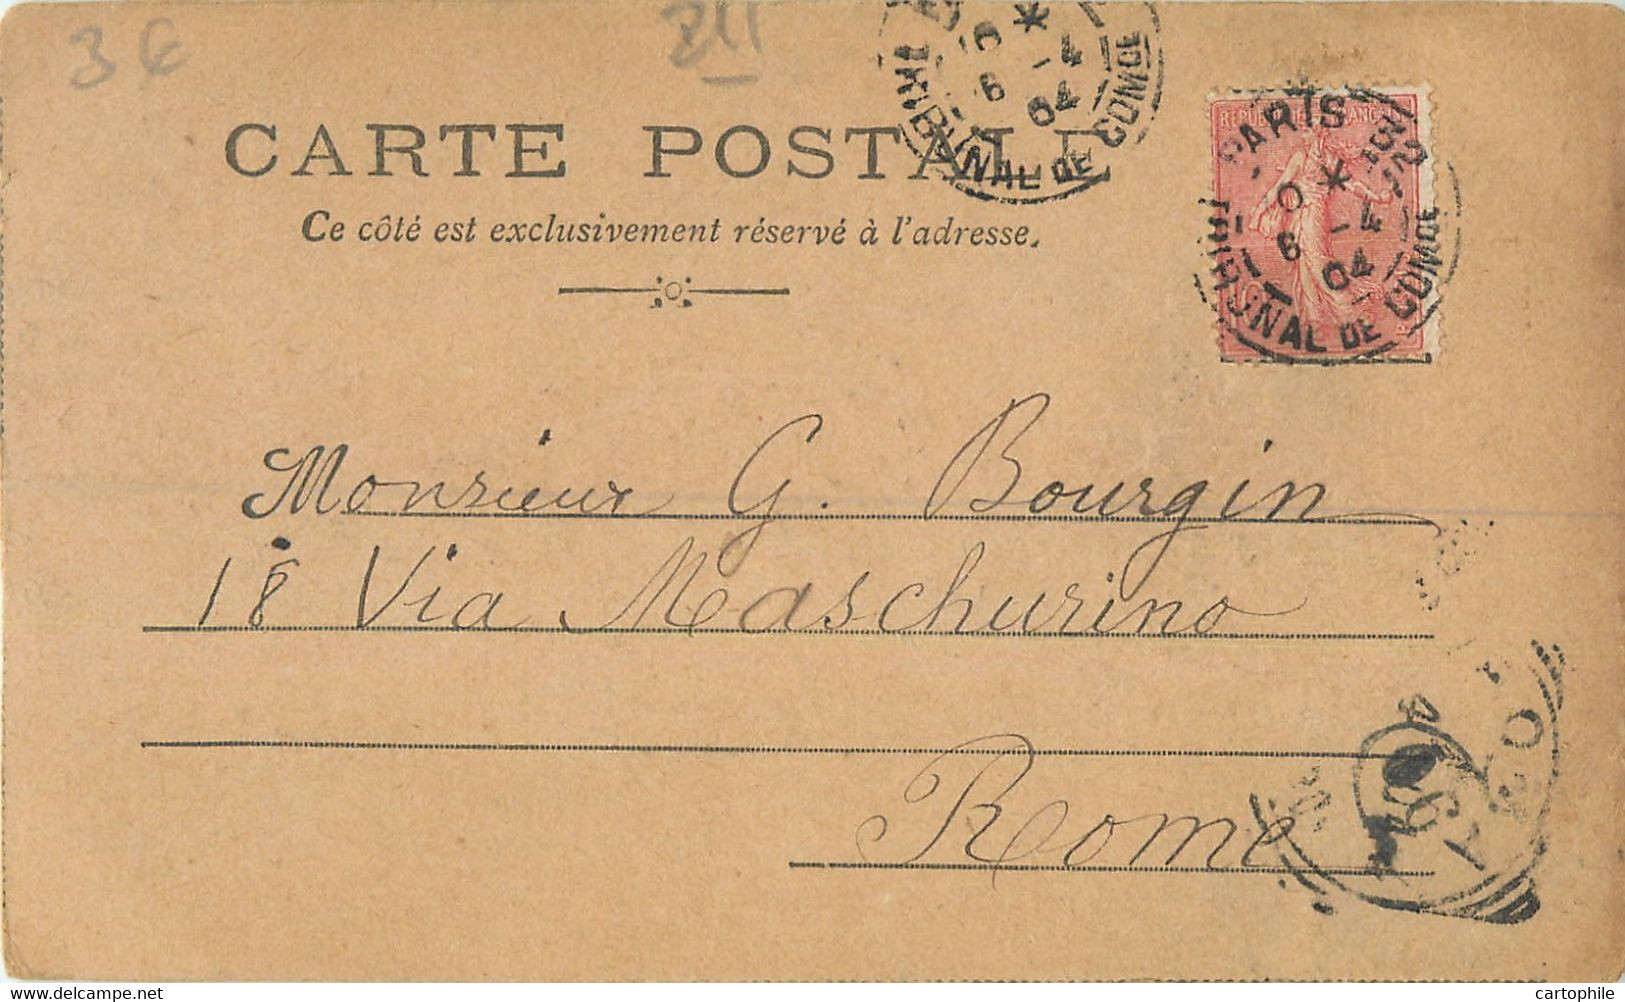 3 €
CARTE POSTALE
Ce côté est exclusivement réservé à l'adresse.
6 -4
04
TRIBUNAL DE COM
REPUBLIQUE FRANÇAISE
PARIS
6 -4
04
TRIBUNAL DE COM
Monsieur G. Bourgin
18 Via Maschurino
Rome
www.delcampe.net
cartophile